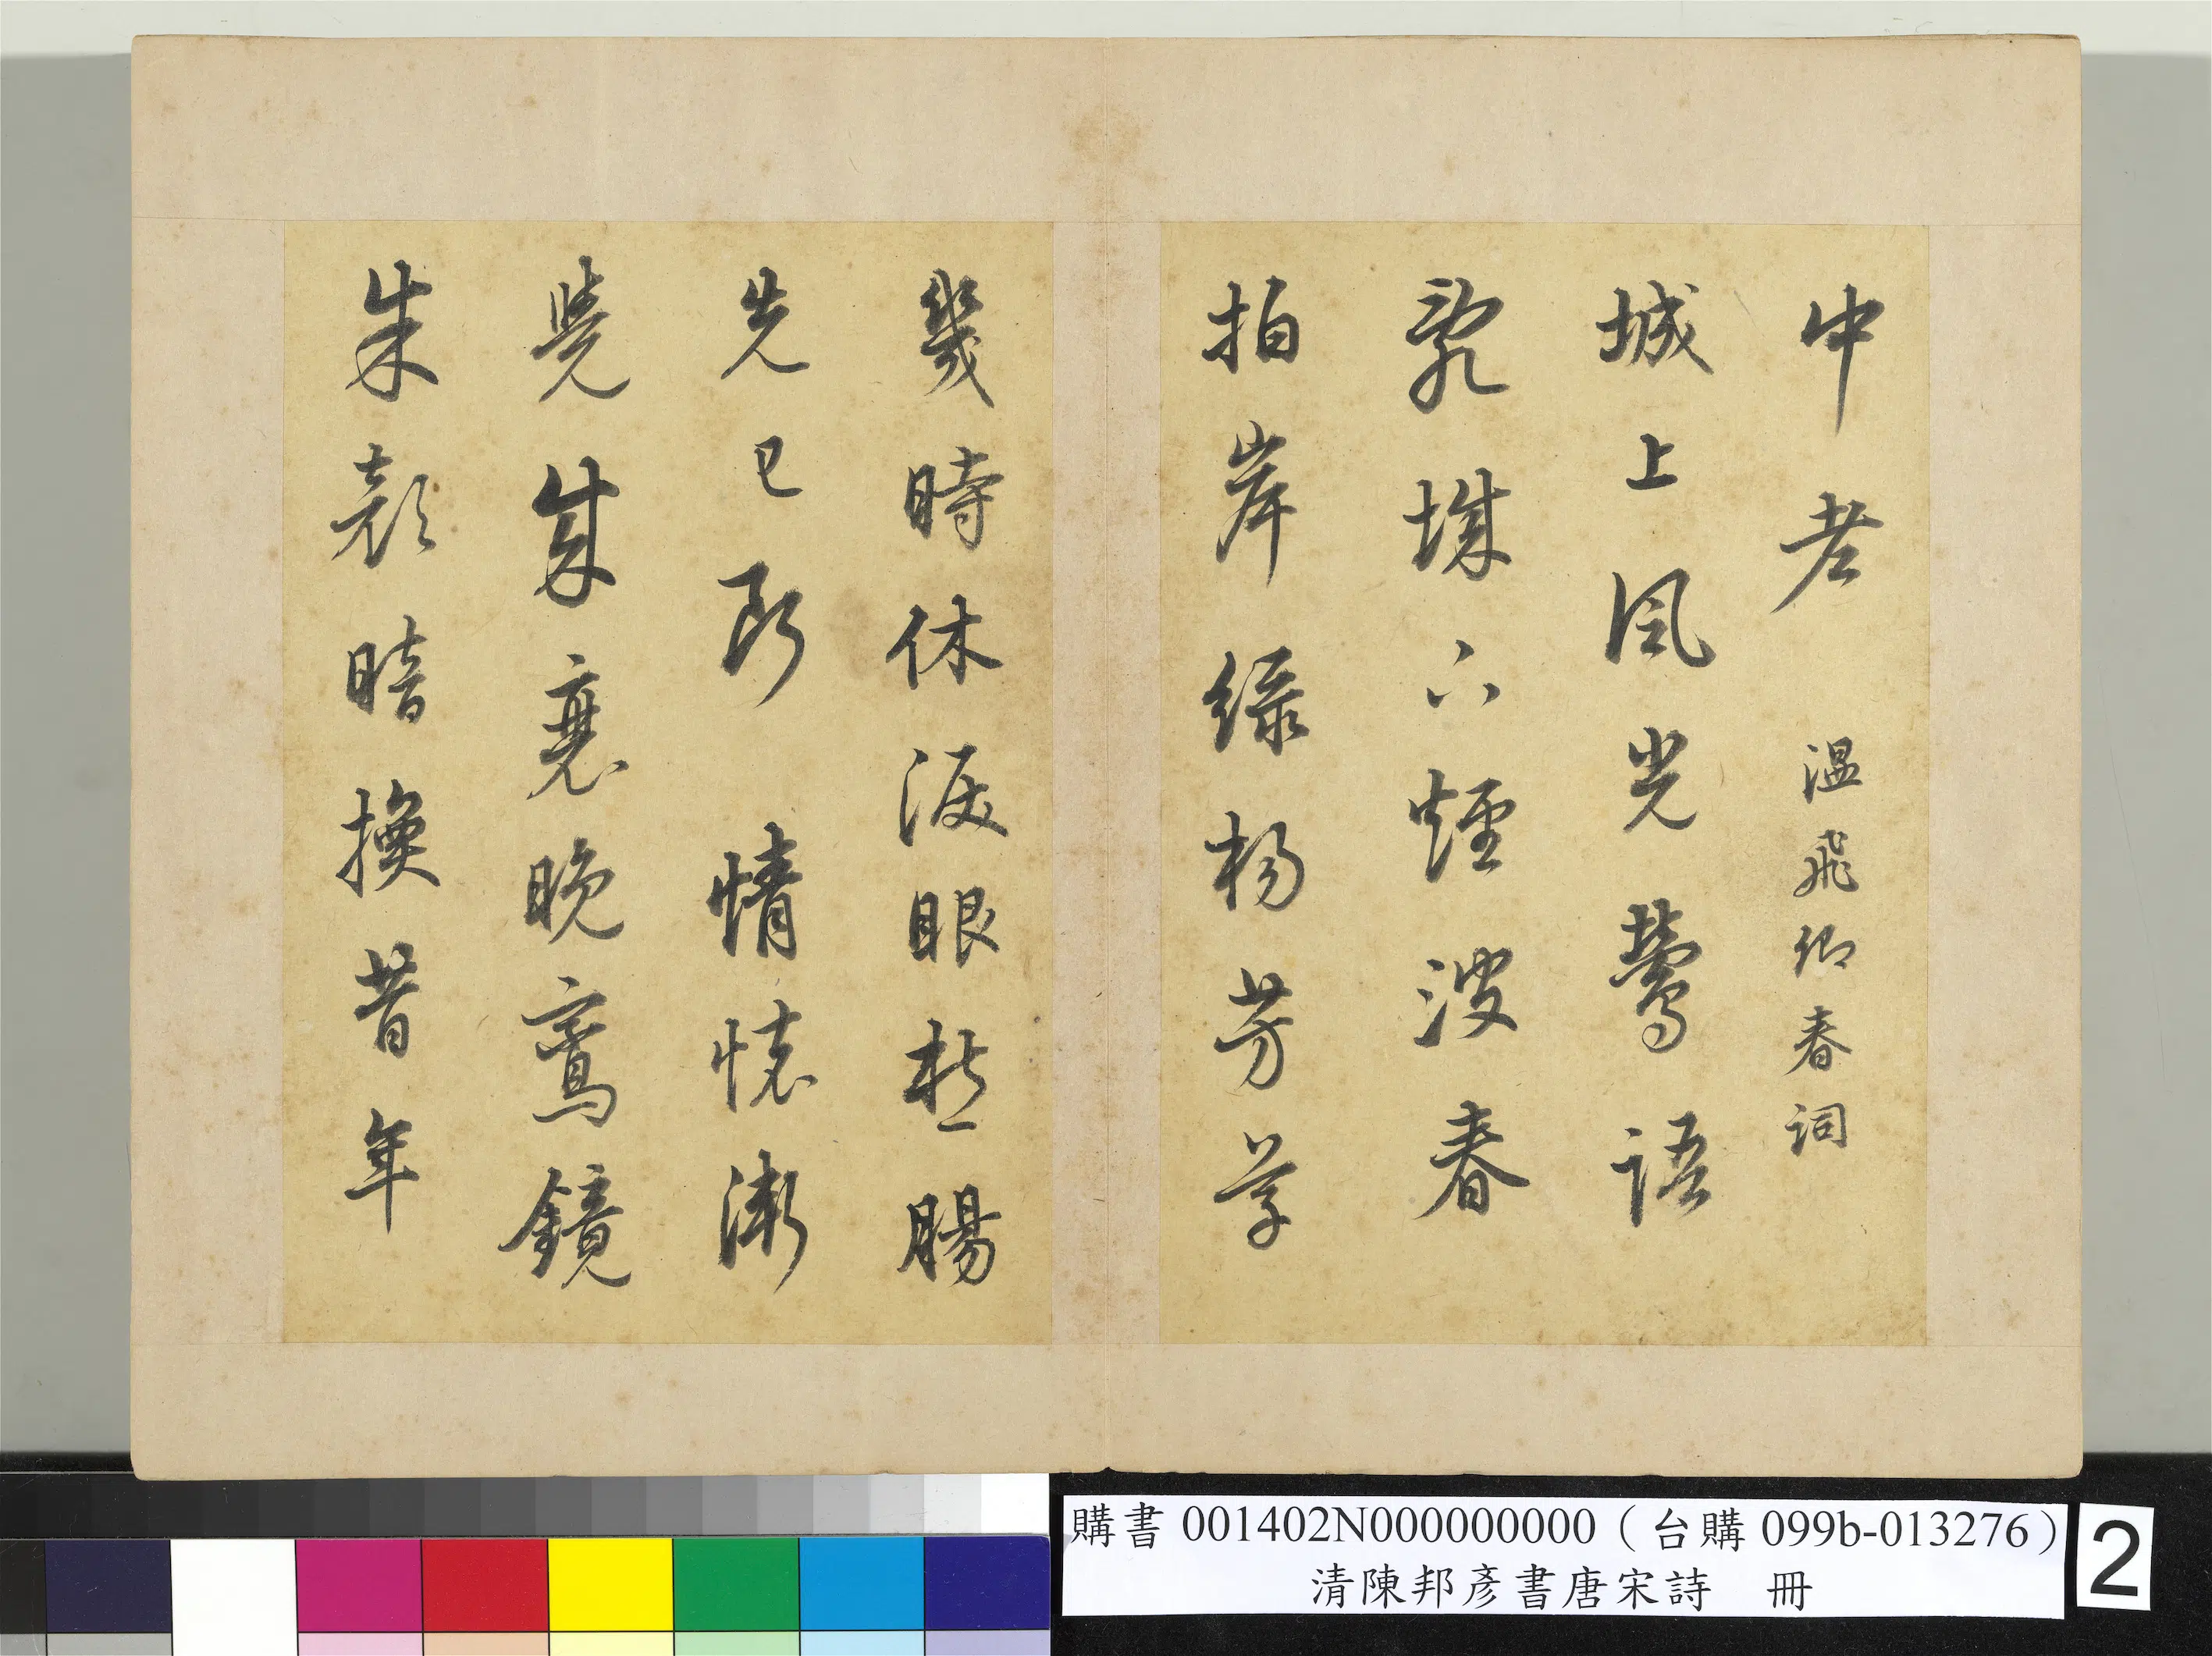 中老 溫飛卿春詞
城上風光鶯語
亂城下煙波春
拍岸綠楊芳草
幾時休淚眼愁腸
先已斷 情懷漸
覺成衰晚鸞鏡
朱顏暗換昔年
購書 001402N000000000（台購 099b-013276）
清陳邦彥書唐宋詩 冊
2